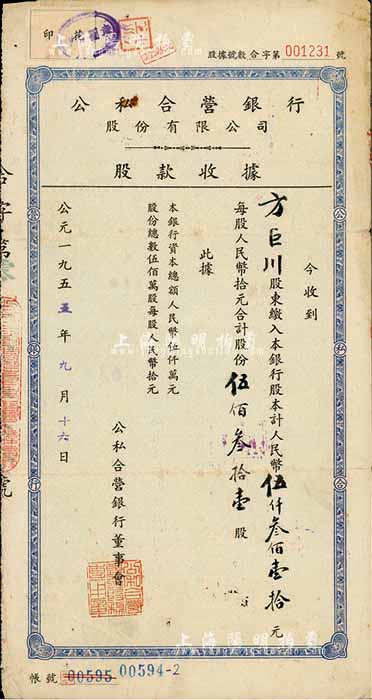 印花
股據號數合字第 001231 號
公私合營銀行
股份有限公司
股款收據
今收到
方巨川股東繳入本銀行股本計人民幣伍仟叁佰壹拾元
每股人民幣拾元合計股份伍佰叁拾壹股
此據
本銀行資本總額人民幣伍仟萬元
股份總數伍佰萬股每股人民幣拾元
公私合營銀行董事會
公元一九五五年九月十六日
帳號 00595 00594-2
上海陽明拍賣